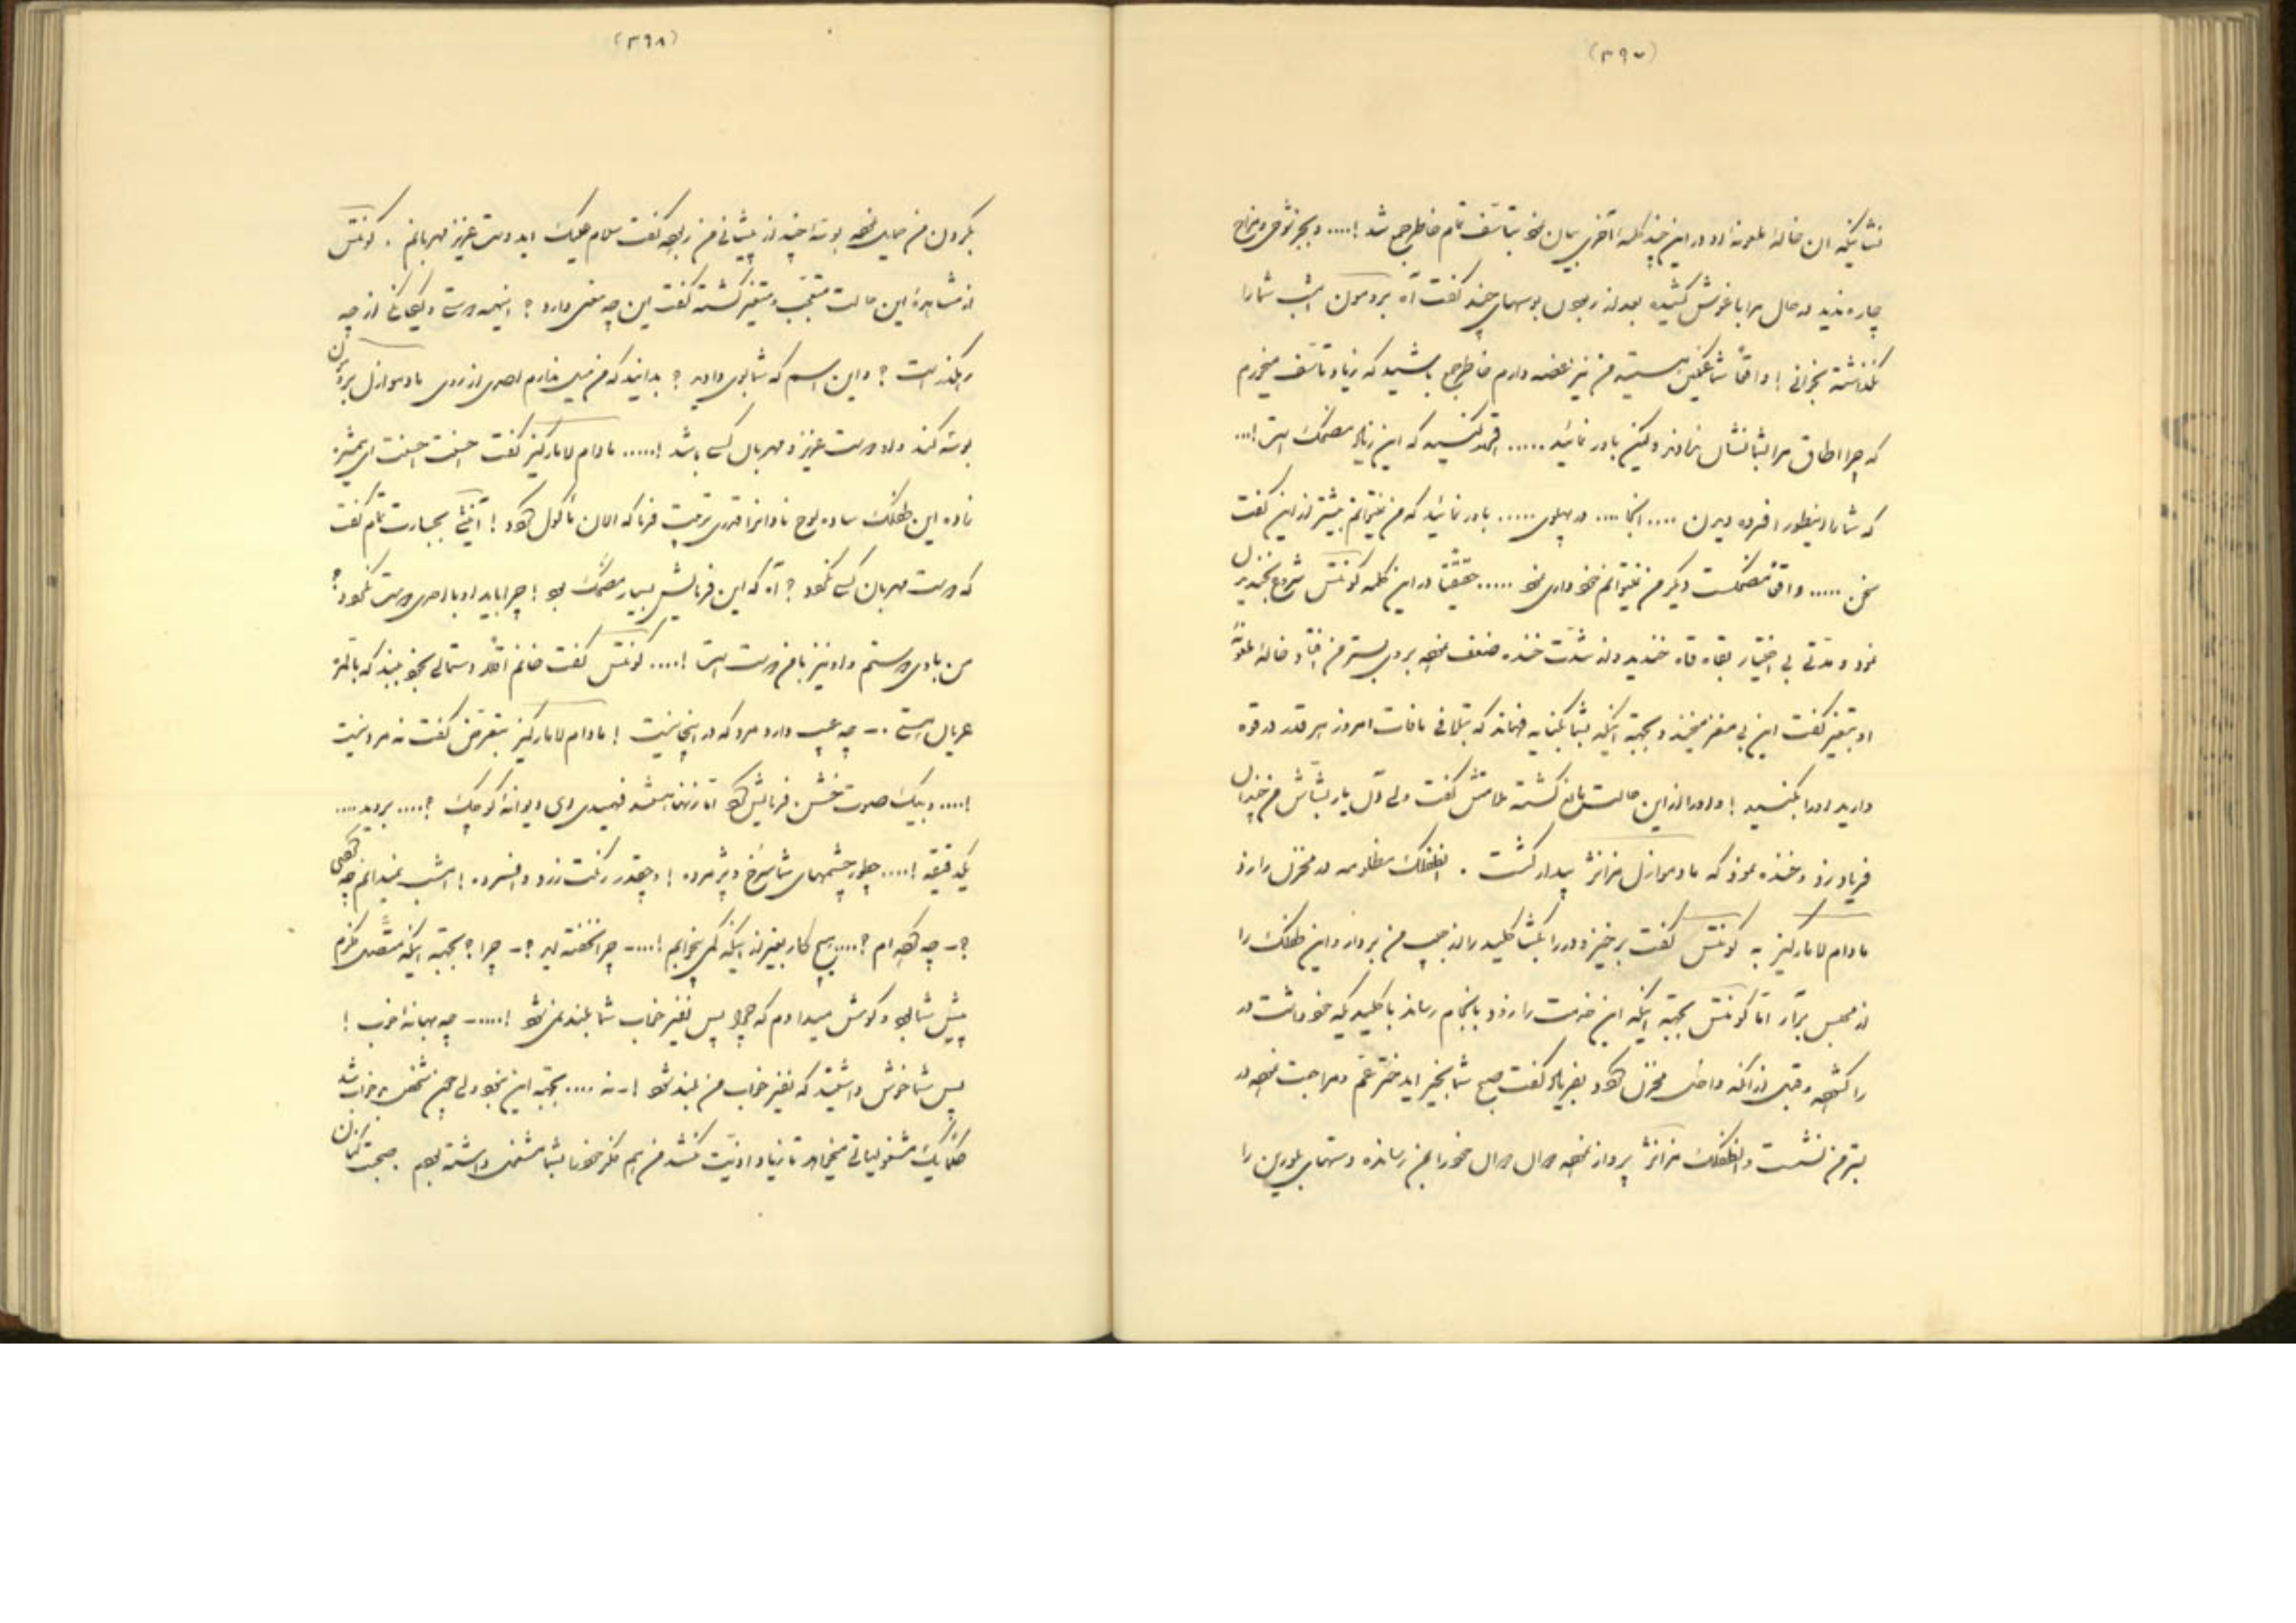 (۳۹۷)
این چند کلمه آخری بیان نمود بتأسف تمام خاطرجمع شد !....
چاره ندید در حال مرا باغوش کشیده بعد از ربودن بوسهای چند گفت آه بردمون امشب شما را
نگذاشته بخرانی ! واقعاً شما غمگین هستید من نیز غصه دارم خاطرجمع باشید که زیاد تأسف میخورم
که چرا اطاق مرا بشما نشان ندادند ولکن باور نمائید ..... که این زیاد مضحک است !...
که شما را اینطور افسرده دیدن .... اینجا .... در پهلوی ..... باور نمائید که من نمیتوانم بیشتر از این گفت
سخن ..... واقعاً مضحکست دیگر من نمیتوانم خود داری نمود ..... حقیقتاً در این کلمه کونتس شروع بخندیدن
نمود و مدتی بی اختیار بقاه قاه خندید و از شدت خنده ضعف نموده بروی بستر من افتاد و خاله ملعونه
او بتغیر گفت این بی مغز میخندد و بجهة اینکه بشما بکنایه فهماند که بتلافی مافات امروز هر قدر در قوه
دارید او را بکنید ! و او را از این حالت ملامتش گفت ولی آن یار بشاش من خندان
فریاد زد و خنده نمود که مادموازل فرانژ بیدار گشت . انطفلک مظلومه در مخزن را زد
مادام لامارکیز به کونتس گفت برخیز و در را بگشا کلید را از جیب من بردار و این طفلک را
از محبس برآر اما کونتس بجهة اینکه این خدمت را زود بانجام رساند با کلیدیکه خود داشت در
را گشوده و قبل از آنکه داخل مخزن شود بفریاد گفت صبح شما بخیر ای دختر عم و مراجعت نموده در
بستر من نشست و انطفلک فرانژ پرواز نموده دوان دوان خود را بمن رسانده دستهای بلورین را
(۳۹۸)
بگردن من حمایل نموده بوسه چند از پیشانی من ربوده گفت سلام علیک ای دوست عزیز مهربانم . کونتس
از مشاهدهٔ این حالت متعجب و متغیر گشته گفت این چه معنی دارد ؟ اینهمه دوستی و یگانگی از چه
رهگذر است ؟ و این اسم که شما بوی دادید ؟ بدانید که من میل ندارم احدی از روی مادموازل بردون
بوسه کند و او دوست عزیز و مهربان کسی باشد !..... مادام لامارکیز گفت احسنت احسنت ای همشیره
زاده این طفلک ساده لوح نادان را قدری تربیت فرما که الان ناکول شود ! آغنس بجسارت تمام گفت
که دوست مهربان کسی نشود ؟ آه که این فرمایش بسیار مضحک بود ! چرا باید او با احدی دوست نشود ؟
من با وی دوستم و او نیز با من دوست است !.... کونتس گفت خانم اقلاً دستمالی بخود ببندید که بالمره
عریان هستی .- چه عیب دارد مرد که در اینجا نیست ! مادام لامارکیز بتعرض گفت نه مرد نیست
!.... و بیک صوت خشن فرمایش شد اما زنها هستند فهمیدی ای دیوانه کوچک ؟.... بردون ....
یکدقیقه !.... چطور چشمهای شما سرخ و پژمرده ! و چقدر رنگت زرد و افسرده ! امشب نمیدانم چه
؟- چه کرده ام ؟.... هیچ کار بغیر از اینکه کمی بخوابم !....- چرا نخفته اید ؟- چرا ؟ بجهة اینکه متصل فکرم
پیش شما بود و گوش میدادم که چرا پس نفیر خواب شما بلند نمی شود !.....- چه بهانه خوب !
پس شما خوش داشتید که نفیر خواب من بلند شود !- نه .... بجهة این نبود ولی چون شخص بی خواب شد
یک مشغولیاتی میخواهد تا زیاد اذیت نکشد من هم فکر خود را بشما مشغول داشته بودم . صحبت کنان